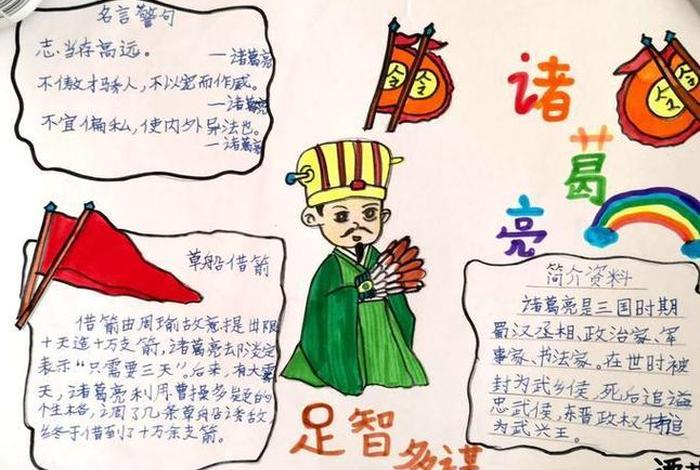 名言警句
志当存高远。
——诸葛亮
不傲才以骄人，不以宠而作威。
——诸葛亮
不宜偏私，使内外异法也。
——诸葛亮
诸
葛
亮
草船借箭
借箭由周瑜故意提出限
十天造十万支箭，诸葛亮却淡定
表示“只需要三天”。后来，有大雾
天，诸葛亮利用曹操多疑的
个性格，调了几条草船诱敌，
终于借到了十万余支箭。
简介资料
诸葛亮是三国时期
蜀汉丞相，政治家、军
事家、书法家。在世时被
封为武乡侯，死后追谥
忠武侯，东晋政权特追
为武兴王。
足智多谋